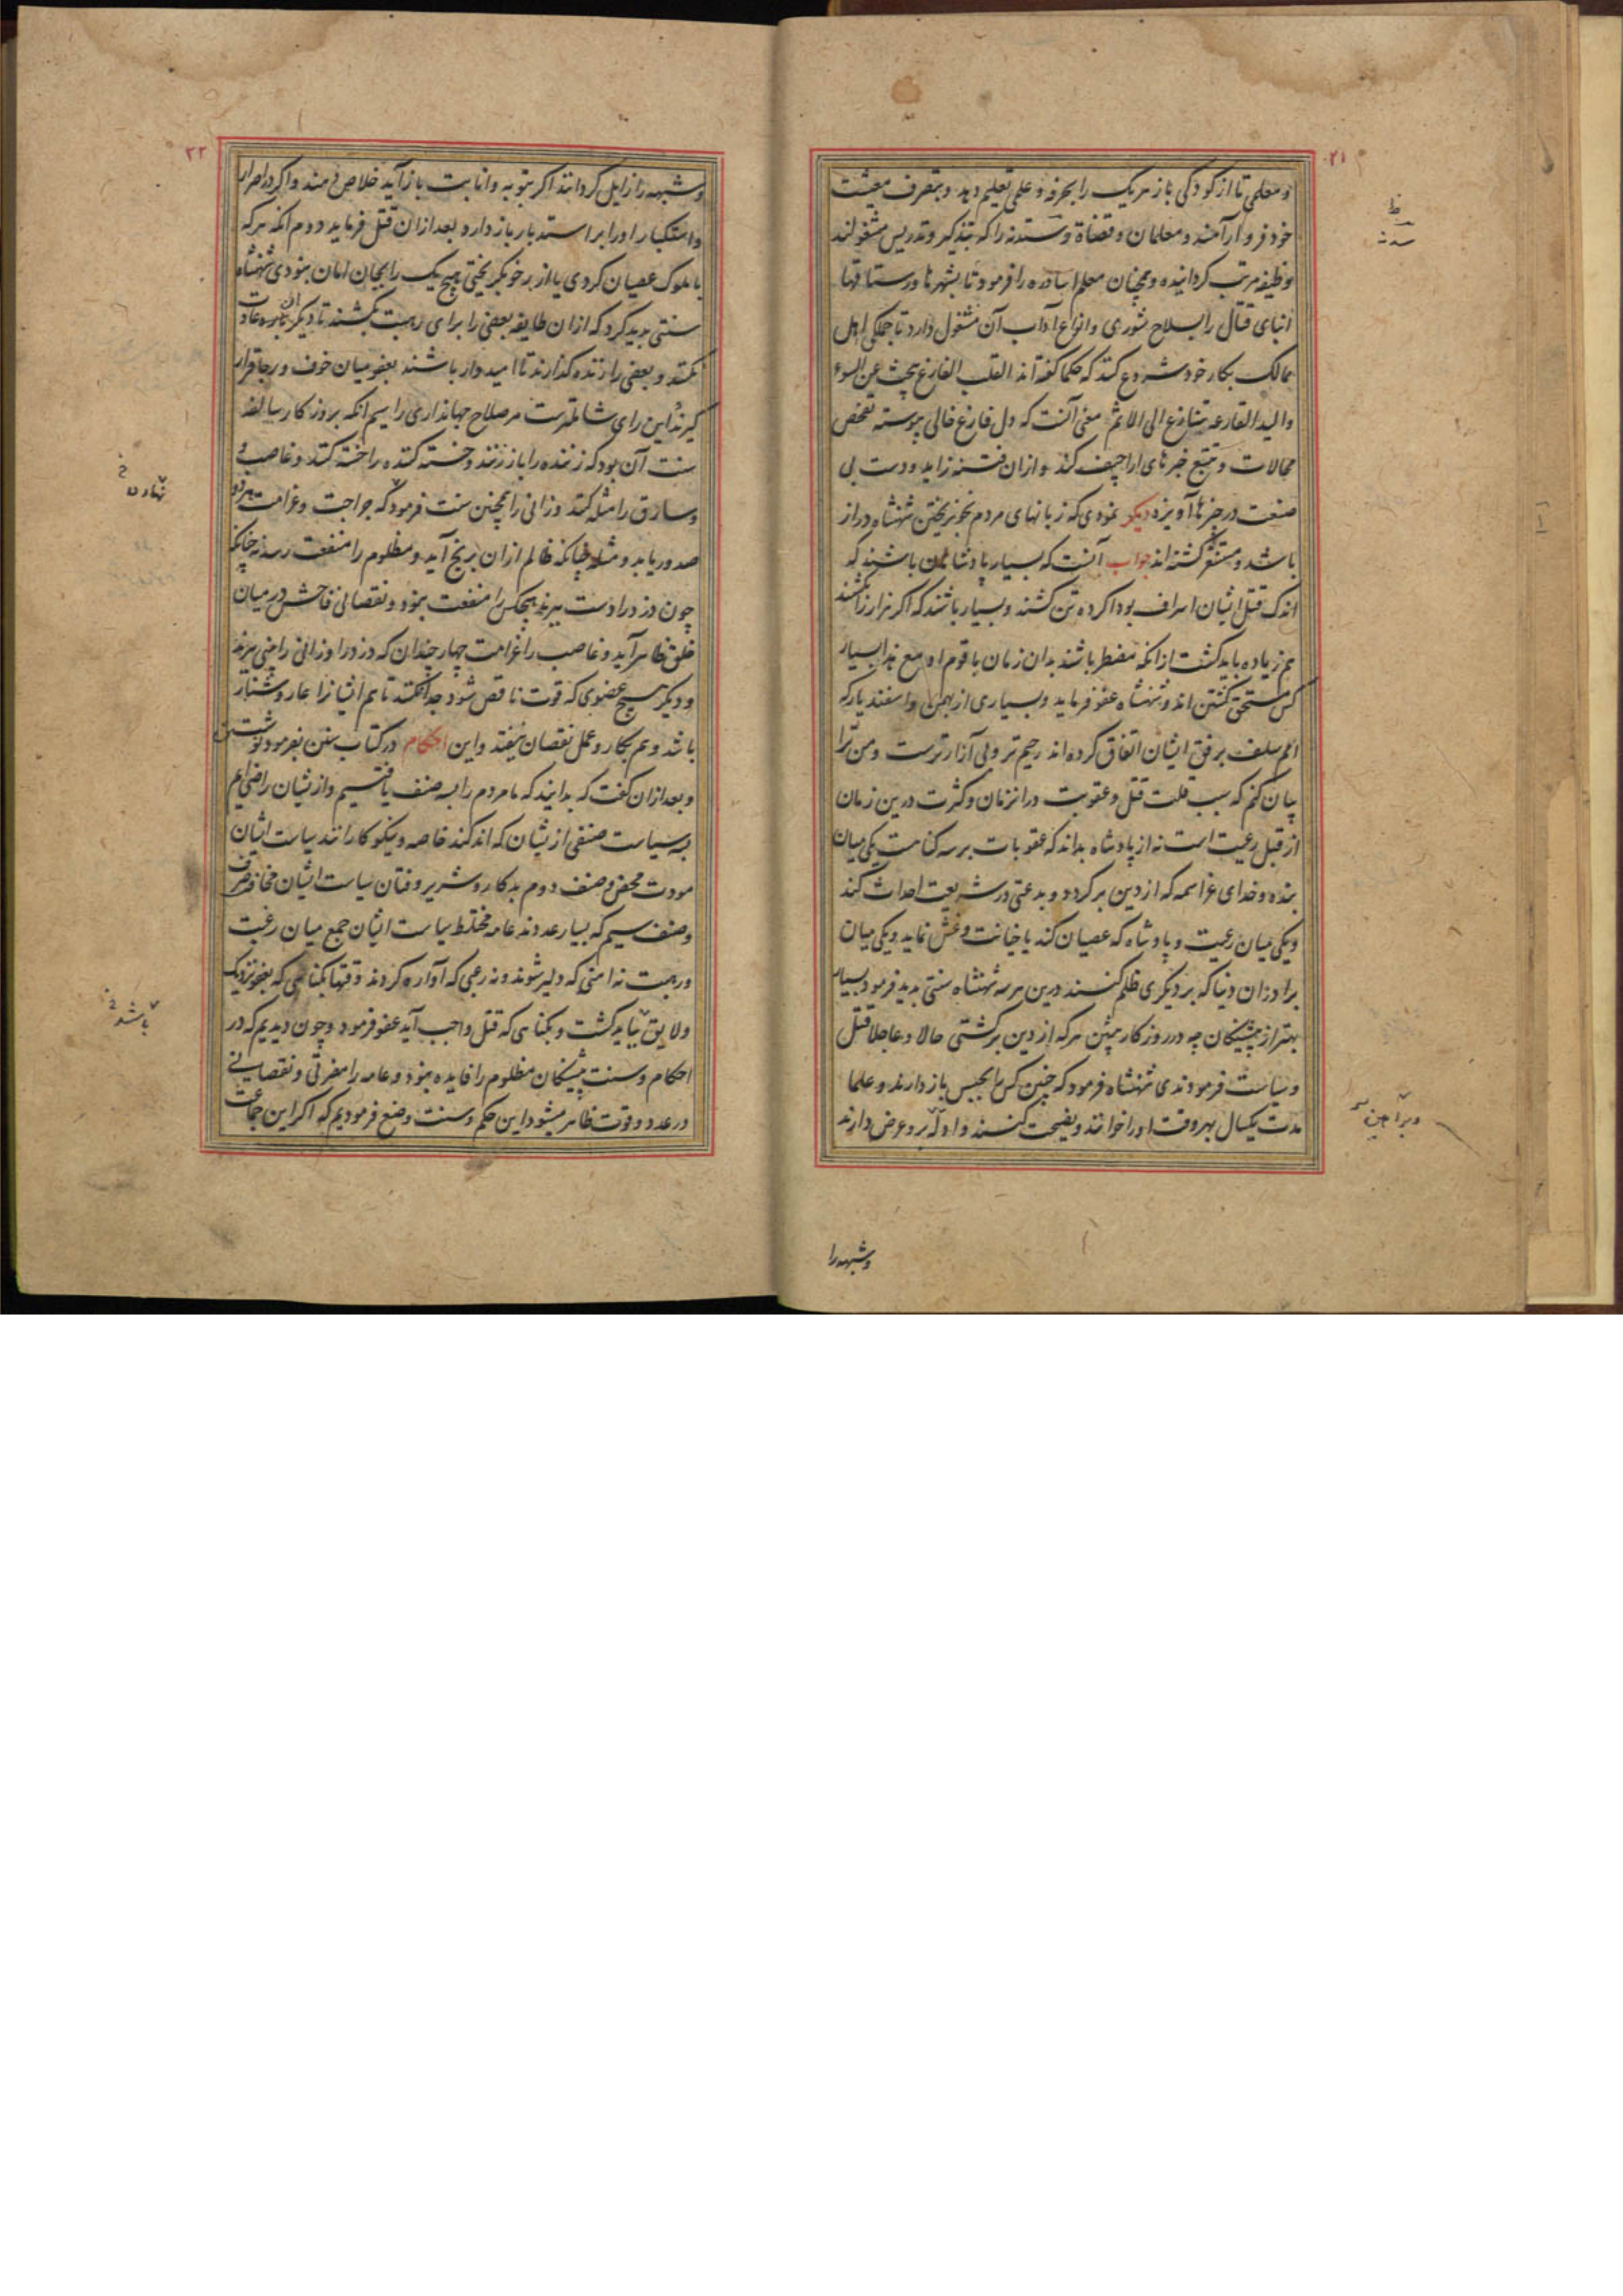 ۲۱
و معلمی تا از کودکی باز هر یک را بحرفه و علمی تعلیم دهد و بتصرف معیشت
خود فرو آرامند و معلمان و قضاة و سدنه را که بتذکیر و تدریس مشغولند
وظیفه مرتب گردانیده و همچنان معلم اساوره را فرمود تا بشهرها و رستاقها
ابنای قتال را بسلاح شوری و انواع آداب آن مشغول دارد تا جملگی اهل
ممالک بکار خود شروع کنند که حکما گفته‌اند القلب الفارغ یبحث عن السوء
والید الفارغه تنازع الی الاثم معنی آنست که دل فارغ خالی پیوسته تفحص
محالات و تتبع خبرهای اراجیف کند و ازان فتنه زاید و دست بی
صنعت در بزه‌ها آویزد دیگر نمودی که زبانهای مردم بخونریختن شهنشاه دراز
باشد و مستشعر گشته‌اند جواب آنست که بسیار پادشاهان باشند که
اندک قتل ایشان اسراف بود اگر ده تن کشند و بسیار باشند که اگر هزار هزار را بکشند
هم زیاده باید کشت ازانکه مضطر باشند بدان زمان با قوم او مع هذا بسیار
کس مستحق کشتن‌اند و شهنشاه عفو فرماید و بسیاری از بهمن و اسفندیار که
امم سلف برفق ایشان اتفاق کرده‌اند رحیم‌تر و بی آزارترست و من ترا
بیان کنم که سبب قلت قتل و عقوبت درانزمان و کثرت درین زمان
از قبل رعیت است نه از پادشاه بداند که عقوبات بر سه گناهست یکی میان
بنده و خدای عز اسمه که از دین برگردد و بدعتی در شریعت احداث کند
و یکی میان رعیت و پادشاه که عصیان کند یا خیانت و غش نماید و یکی میان
برادران دنیا که بر دیگری ظلم کنند درین هر سه شهنشاه سنتی پدید فرمود بسیار
بهتر از پیشینگان چه در روزگار پیشین هر که از دین برگشتی حالا و عاجلا قتل
و سیاست فرمودندی شهنشاه فرمود که چنین کس را بحبس باز دارند و علما
مدت یکسال بهر وقت او را خوانند و نصیحت کنند و ادله برو عرض دارند
و شبهه را
ظ
سدنه
۲۲
و شبهه را زایل گردانند اگر بتوبه و انابت باز آید خلاص دهند و اگر در اصرار
و استکبار او را بر استدبار باز دارد بعد ازان قتل فرماید دوم آنکه هر که
با ملوک عصیان کردی یا از زحف بگریختی هیچ یک را بجان امان نبودی شهنشاه
سنتی پدید کرد که ازان طایفه بعضی را برای رهبت بکشند تا دیگران بدان عادت
نکنند و بعضی را زنده گذارند تا امیدوار باشند بعفو میان خوف و رجا قرار
گیرند این رای شاملترست مر صلاح جهانداری را سیم آنکه بروزگار سالفه
سنت آن بود که زننده را باز زنند و خسته کننده را خسته کنند و غاصب
و سارق را مثله کنند و زانی را همچنین سنت فرمود که جراحت و غرامت
صدور یابد و مثله چنانکه ظالم ازان برنج آید و مظلوم را منفعت رسد نه چنانکه
چون دزد را دست ببرند هیچکس را منفعت نبود و نقصانی فاحش در میان
خلق ظاهر آید و غاصب را غرامت چهار چندان که دزد را و زانی را بینی برند
و دیگر هیچ عضوی که قوت ناقص شود جدا نکنند تا هم ایشانرا عار و شنار
باشد و هم بکار و عمل نقصان نیفتد و این احکام در کتاب سنن بفرمود نوشتن
و بعد ازان گفت که بدانید که ما مردم را بسه صنف یافتیم و ازیشان راضی‌ایم
بسه سیاست صنفی ازیشان که اندکند خاصه و نیکو کارانند سیاست ایشان
مودت محض و صنف دوم بدکار و شریر و فتان سیاست ایشان مخافت صرف
و صنف سیم که بسیار عددند عامه مختلط سیاست ایشان جمع میان رغبت
و رهبت نه امنی که دلیر شوند و نه رعبی که آواره گردند وقتها بگناهی که بعفو نزدیک
و لایق بباید کشت و بگناهی که قتل واجب آید عفو فرمود و چون دیدیم که در
احکام و سنت پیشینگان مظلوم را فایده نبود و عامه را مضرتی و نقصانی
در عدد و قوت ظاهر میشود این حکم و سنت وضع فرمودیم که اگر این جماعت
باشد